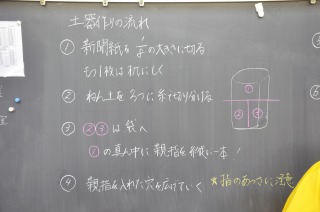 土器作りの流れ
① 新聞紙を 1/2の大きさに切る
もう1枚は机にしく
② ねん土を 3つに糸で切り分ける
③ ②③は袋へ
①の真ん中に親指を
一本!
④ 親指を入れた穴を広げていく ★指のあつさに注意
①
②
③